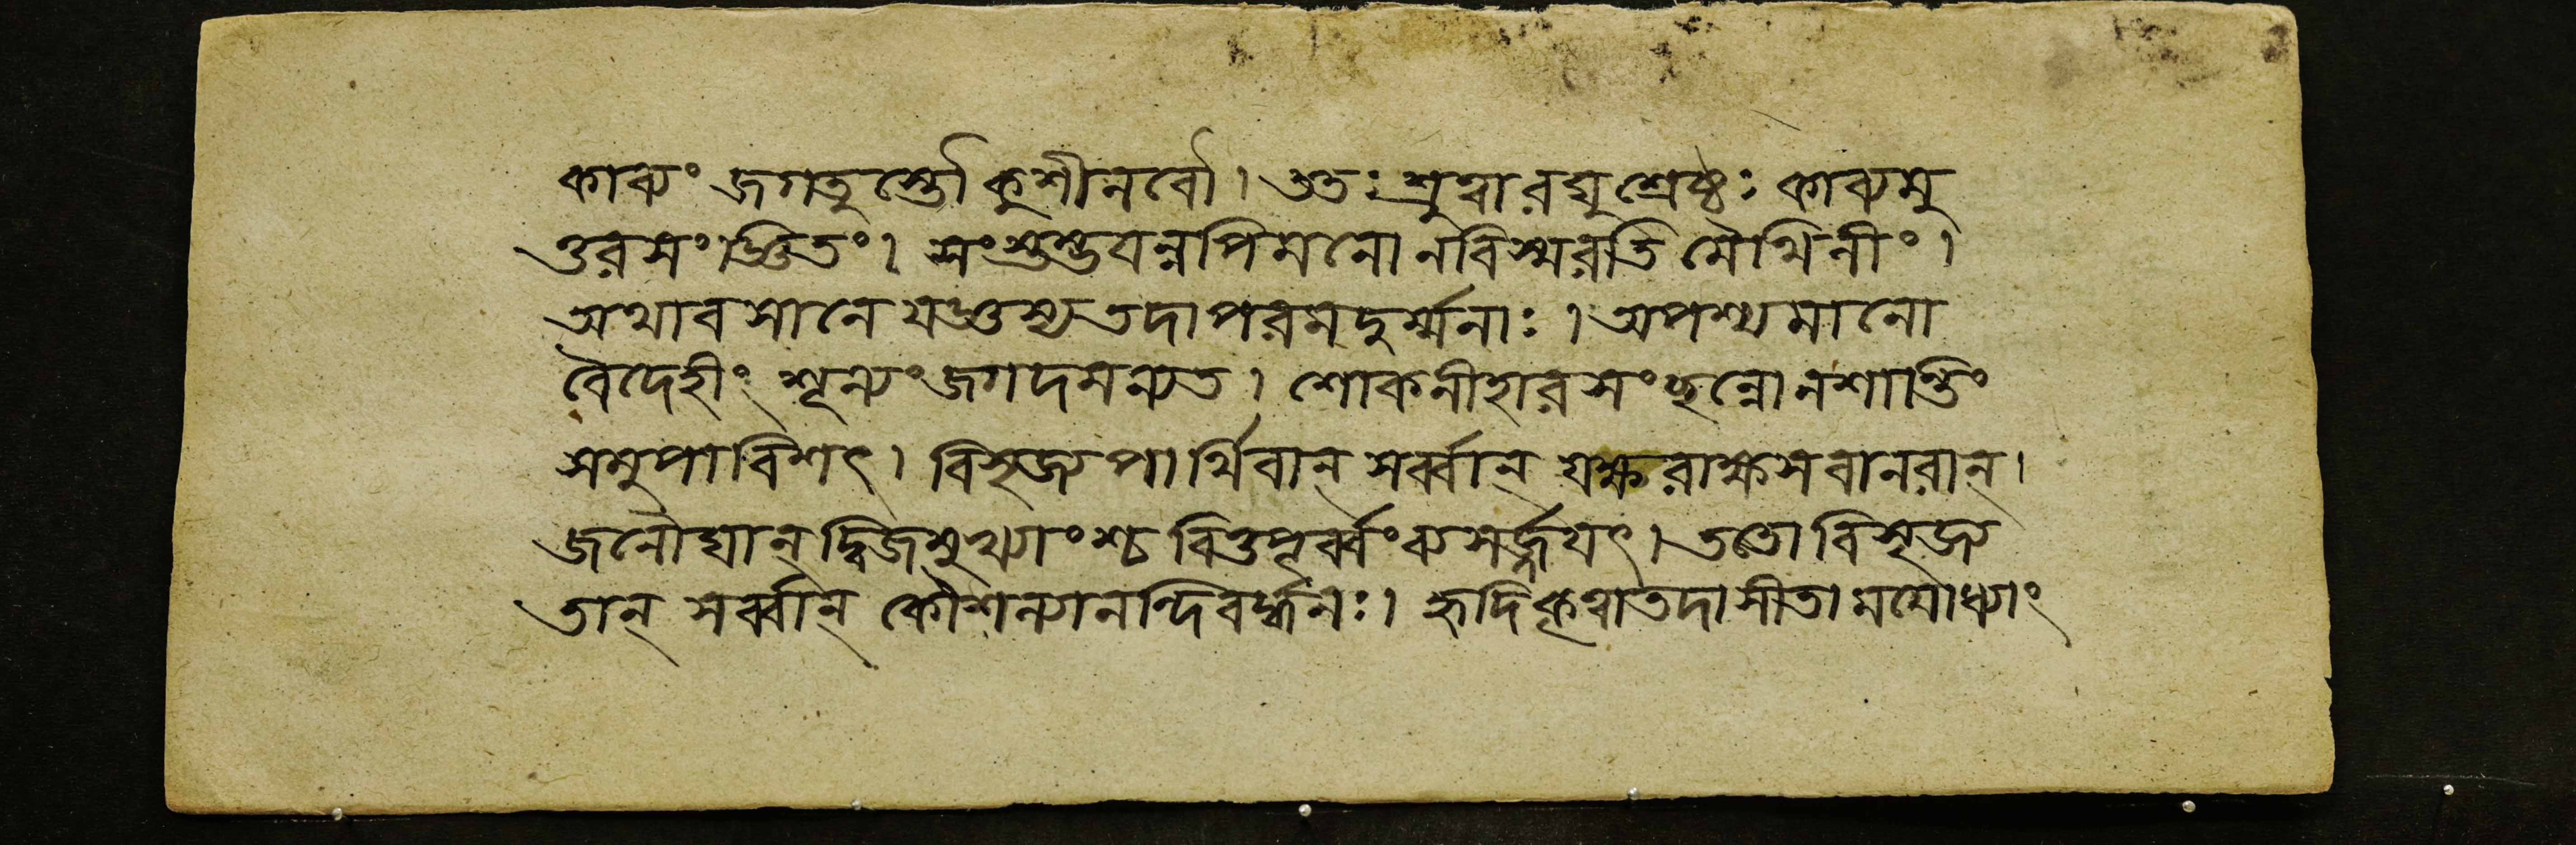 কাব্যং জগতুস্তৌ কুশীলবৌ। ততঃ শ্রুত্বা রঘুশ্রেষ্ঠঃ কাব্যমু
ত্তরসংজ্ঞিতং। সংশুদ্ধবন্নপিমনো নবিস্মরতি মৈথিলীং।
অথাবসানে যজ্ঞস্য তদাপরমদুর্ম্মনাঃ। অপশ্যমানো
বৈদেহীং শূন্যং জগদমন্যত। শোকনীহারসংছন্নো নশান্তিং
সমুপাবিশৎ। বিসৃজ্য পার্থিবান্ সর্ব্বান্ যক্ষরাক্ষসবানরান্।
জনৌঘান্ দ্বিজমুখ্যাংশ্চ বিত্তপূর্ব্বংব্যসর্জ্জয়ৎ। ততো বিসৃজ্য
তান্ সর্ব্বান্ কৌশল্যানন্দিবর্দ্ধনঃ। হৃদিকৃত্বাতদাসীতামযোধ্যাং